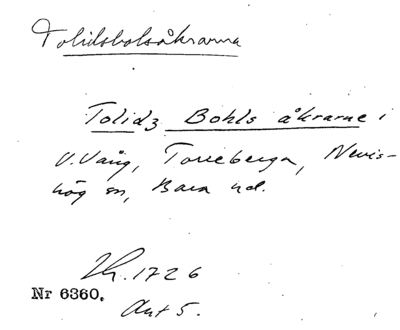 Tolidsbolsåkrarna
Tolidz Bohls åkrarne i
V. Vång, Torreberga, Nevis-
hög sn, Bara hd.
Lh. 1726
Nr 6360.
Akt 5.